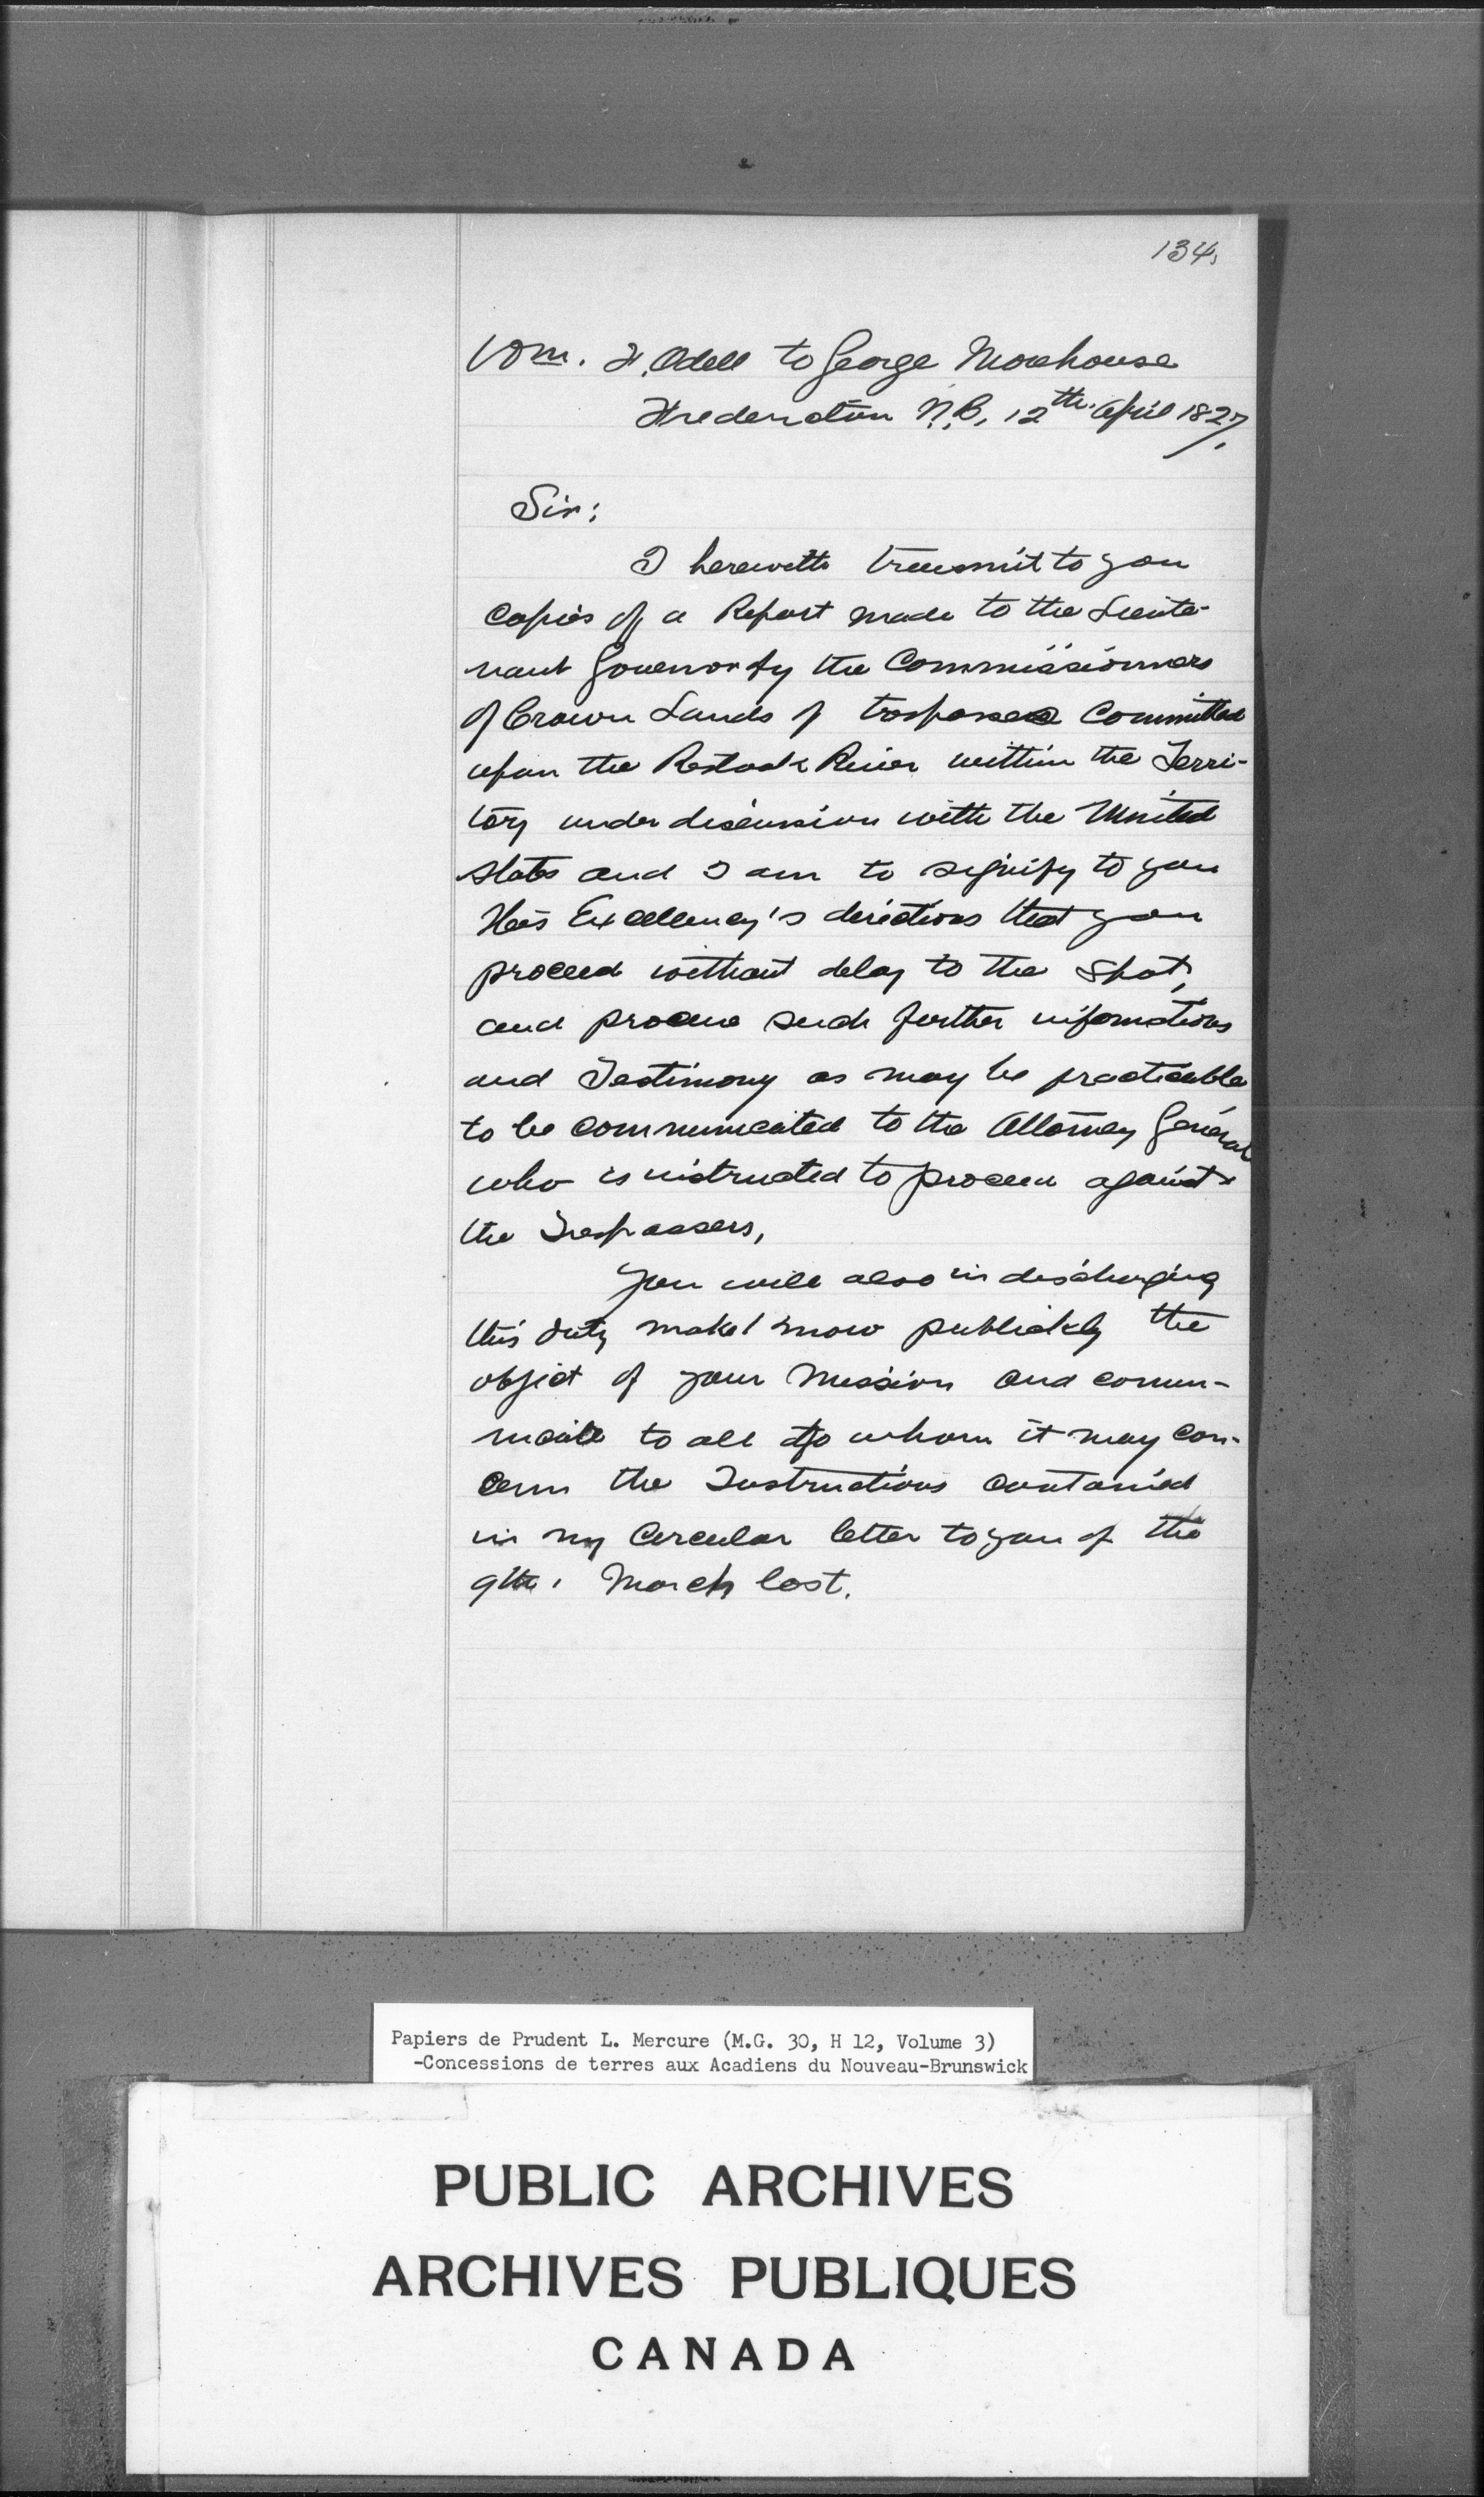 134,
Wm. F. Odell to George Morehouse
Fredericton N.B, 12th. April 1827.
Sir;
I herewith transmit to you
Copies of a Report made to the Lieute-
nant Governor by the Commissionners
of Crown Lands of trespasses Committed
upon the Restook River within the Terri-
tory under discussion with the United
States and I am to signify to you
His Excellency's directions that you
proceed without delay to the Spot,
and procure such further informations
and Testimony as may be practicable
to be communicated to the Attorney General
who is instructed to proceed against
the Trespassers,
You will also in discharging
this duty make know publickly the
object of your Mission and commu-
nicate to all to whom it may con-
cern the Instructions contained
in my Circular letter to you of the
9th. March last.
Papiers de Prudent L. Mercure (M.G. 30, H 12, Volume 3)
-Concessions de terres aux Acadiens du Nouveau-Brunswick
PUBLIC ARCHIVES
ARCHIVES PUBLIQUES
CANADA